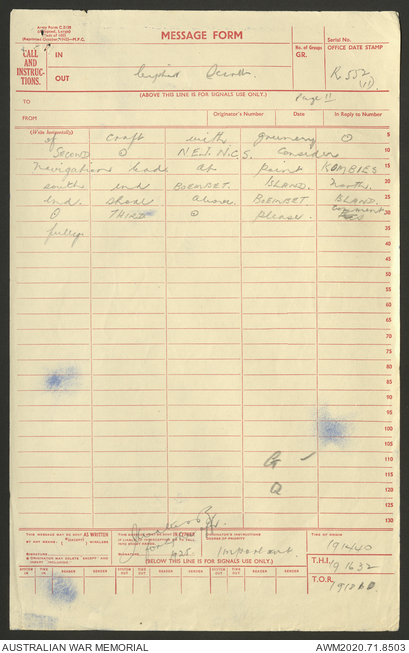 Army Form C.2128
MESSAGE FORM
Serial No.
CALL AND INSTRUC-TIONS.
IN
OUT
No. of Groups
GR.
OFFICE DATE STAMP
R 552
(11)
(ABOVE THIS LINE IS FOR SIGNALS USE ONLY.)
Page 11
TO
FROM
Originator's Number
Date
In Reply to Number
(Write horizontally)
of craft with greenery ⊙ 5
SECOND ⊙ N.E.I. N.C.S. Consider 10
navigation leads at point KOMBIES 15
south end BOEMBET. ISLAND. North 20
end. shoal above. BOEMBET ISLAND. 25
⊙ THIRD ⊙ please. comment 30
fully. 35
40
45
50
55
60
65
70
75
80
85
90
95
100
105
110
115
G ✓ 120
Q 125
130
THIS MESSAGE MAY BE SENT AS WRITTEN
BY ANY MEANS
THIS MESSAGE MUST BE SENT IN CIPHER
ORIGINATOR'S INSTRUCTIONS
DEGREE OF PRIORITY
TIME OF ORIGIN
191440
SIGNATURE
SIGNATURE
Important.
(BELOW THIS LINE IS FOR SIGNALS USE ONLY.)
T.H.I. 191632
SYSTEM IN
TIME IN
READER
SENDER
SYSTEM OUT
TIME OUT
READER
SENDER
SYSTEM OUT
TIME OUT
READER
SENDER
T.O.R.
AUSTRALIAN WAR MEMORIAL
AWM2020.71.8503